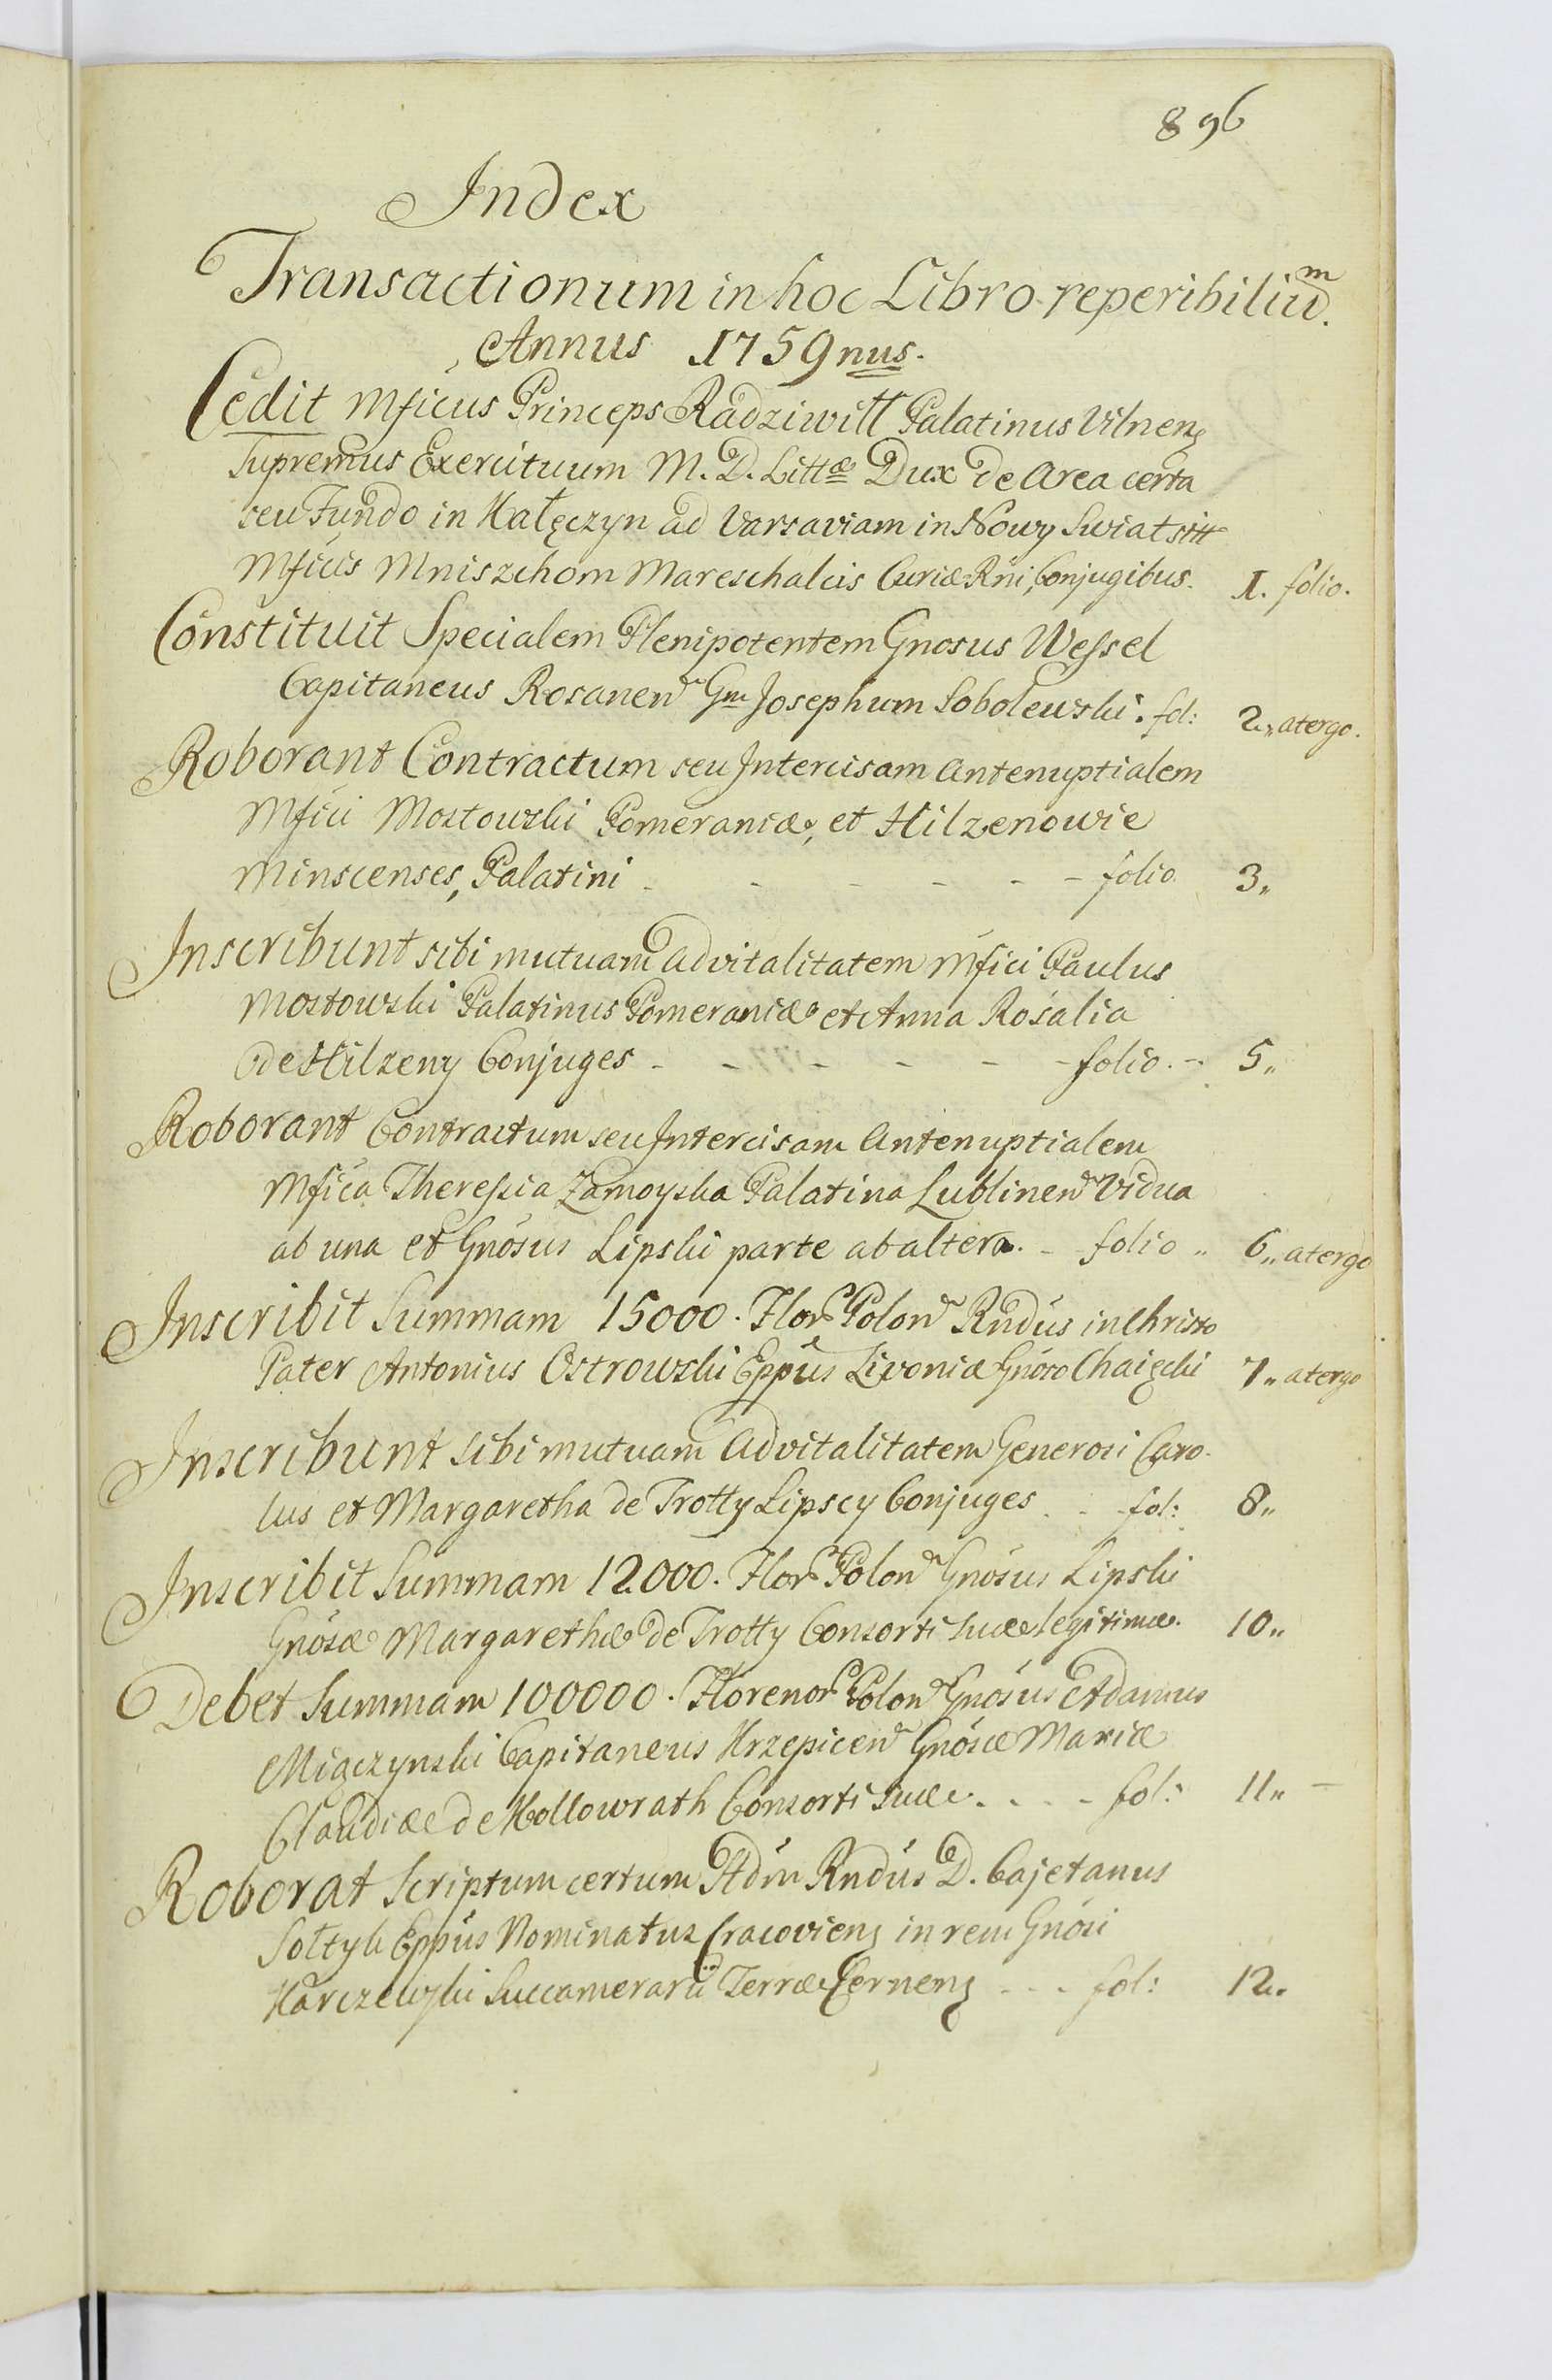 896
Index
Transactionum in hoc Libro reperibiliũm.
Annus 1759nus.
Cedit Mficus Princeps Radziwiłł Palatinus Vilnens
Supremus Exercituum M. D. Littæ Dux de Area certa
seu Fundo in Kałęczyn ad Varsaviam in Nowy Swiat sitt
Mficis Mniszchom Mareschalcis Curiæ Rñi, Conjugibus. 1. folio.
Constituit Specialem Plenipotentem Gnosus Wessel
Capitaneus Rosanen Gm Josephum Sobolewski. fol: 2„ atergo.
Roborant Contractum seu Intercisam Antenuptialem
Mfici Mostowski Pomeraniæ, et Hilzenowie
Minscenses, Palatini - - - - - - folio 3„
Inscribunt sibi mutuam advitalitatem Mfici Paulus
Mostowski Palatinus Pomeraniæ et Anna Rosalia
de Hilzeny Conjuges - - - - - - folio. - 5„
Roborant Contractum seu Intercisam Antenuptialem
Mfica Theressia Zamoyska Palatina Lublinen Vidua
ab una et Gnosus Lipski parte ab altera. - folio „ 6„ atergo
Inscribit Summam 15000. Flor Polon Rndus in Christo
Pater Antonius Ostrowski Eppus Livoniæ Gnoso Chaięcki 7„ atergo
Inscribunt sibi mutuam Advitalitatem Generosi Caro-
lus et Margaretha de Trotty Lipscy Conjuges . - fol: 8„
Inscribit Summam 12000. Flor Polon Gnosus Lipski
Gnosæ Margarethæ de Trotty Consorti suæ legitimæ. 10„
Debet Summam 100000. Florenor Polon Gnosus Adamus
Miączynski Capitaneus Krzepicen Gnosæ Mariæ
Claudiæ de Kollowrath Consorti suæ. - - - fol: 11„ -
Roborat Scriptum certum Itdm Rndus D. Cajetanus
Sołtyk Eppus Nominatus Cracoviens in rem Gnosi
Karczewski Succamerarii Terræ Cernens - - - fol: 12.